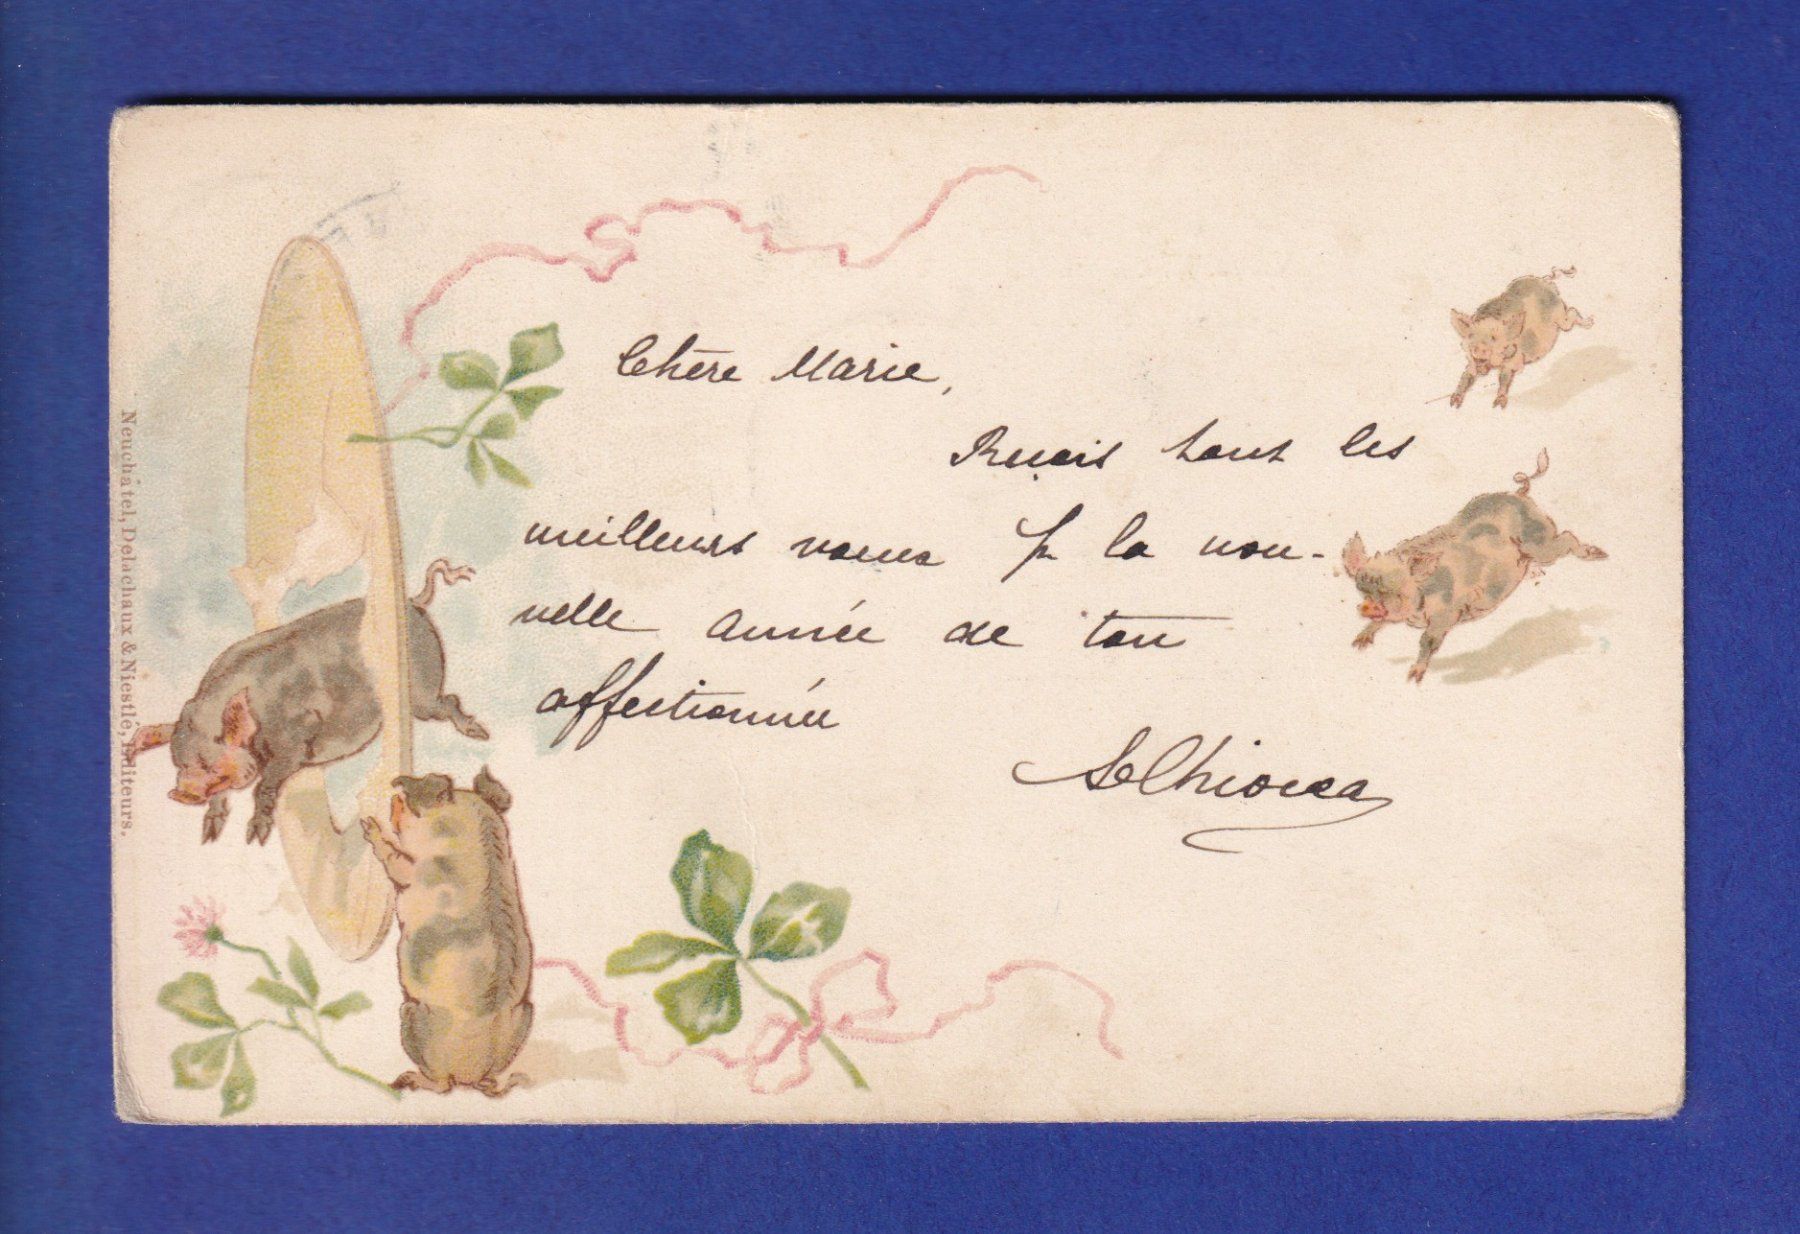 Chère Marie,
Reçois tout les
meilleurs voeux p. la nou-
velle année de ton
affectionnée
Neuchâtel, Delachaux & Niestlé, Editeurs.